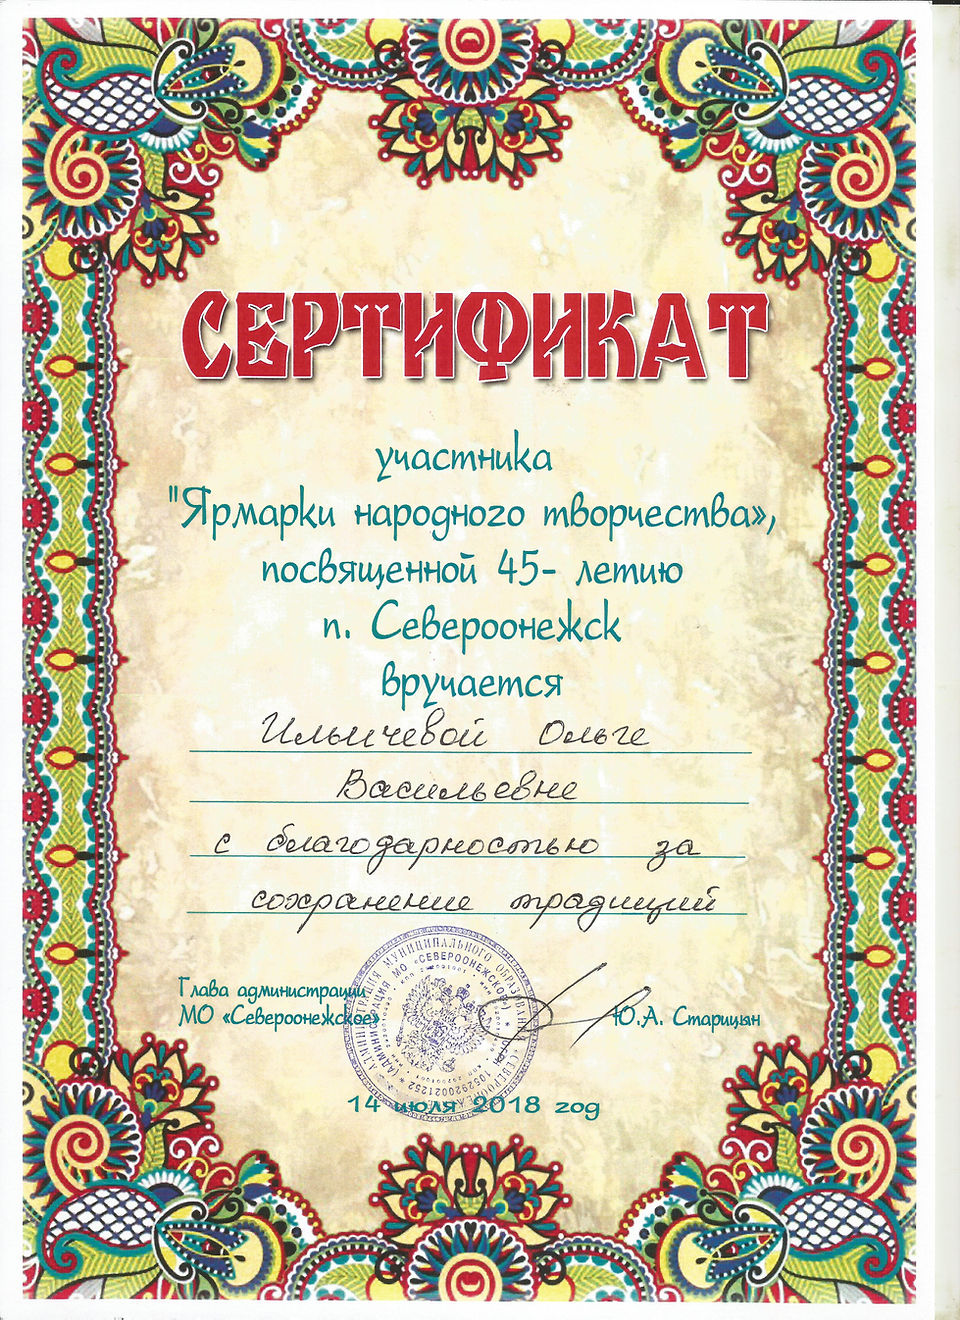 СЕРТИФИКАТ
участника
"Ярмарки народного творчества»,
посвященной 45- летию
п. Североонежск
вручается
Ильичевой Ольге
Васильевне
с благодарностью за
сохранение традиций
Глава администрации
МО «Североонежское»
Ю.А. Старицын
АДМИНИСТРАЦИЯ МУНИЦИПАЛЬНОГО ОБРАЗОВАНИЯ «СЕВЕРООНЕЖСКОЕ»
(АДМИНИСТРАЦИЯ МО «СЕВЕРООНЕЖСКОЕ»)
14 июля 2018 год